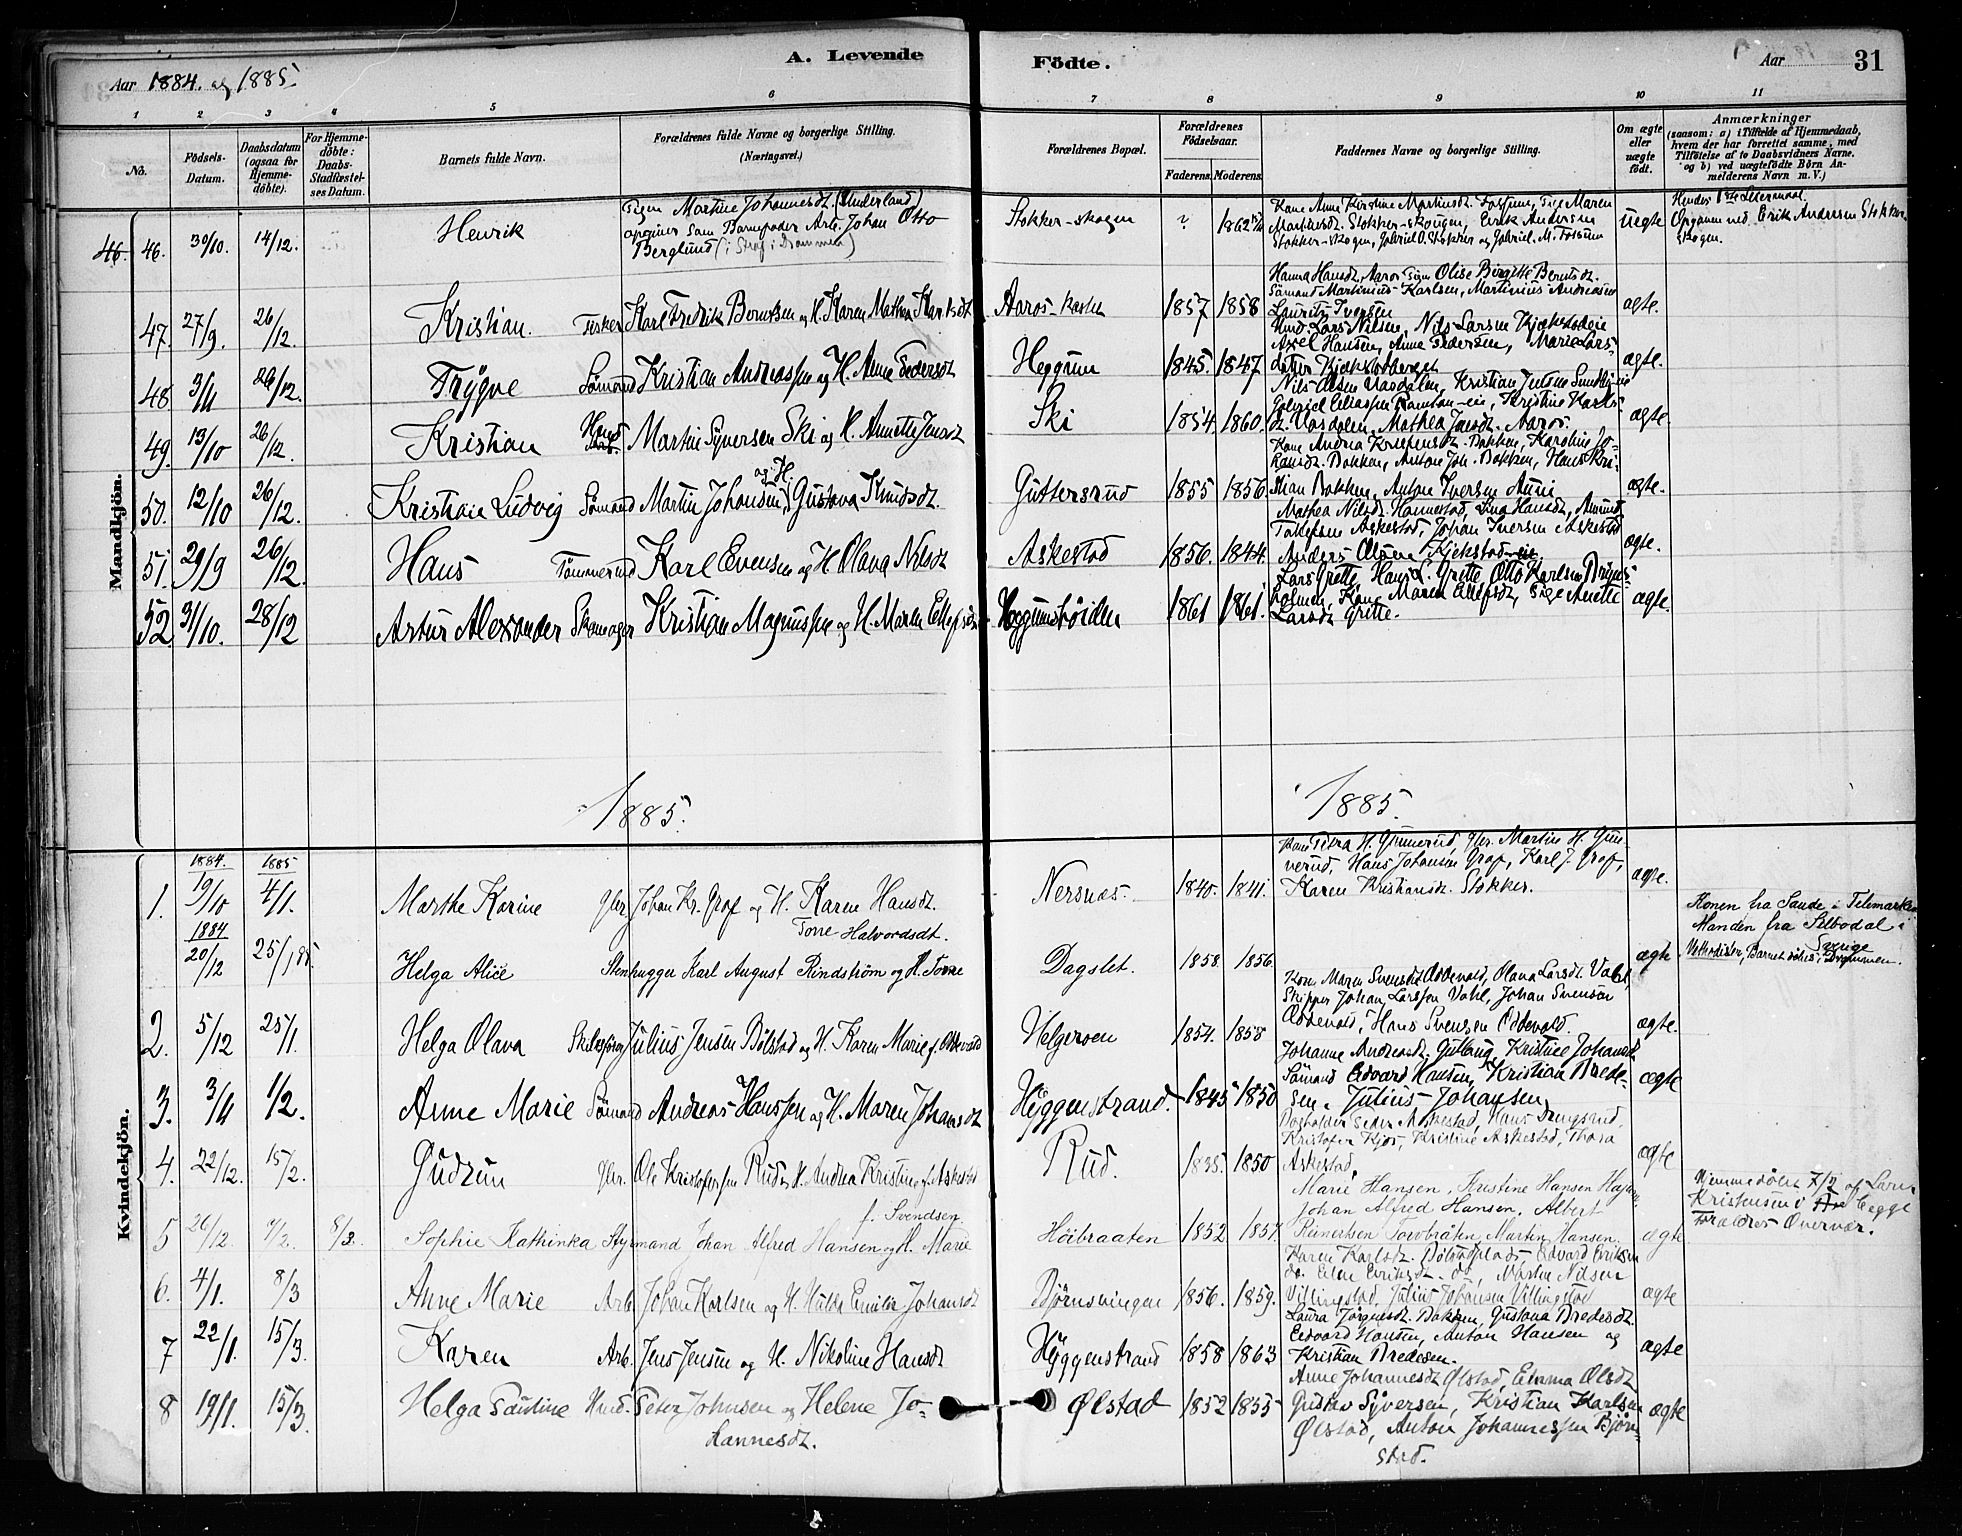 Aar 1884. og 1885.
A. Levende
Födte.
Aar
31
1 2 3 4 5 6 7 8 9 10 11
No.
Födsels-Datum.
Daabsdatum (ogsaa for Hjemmedöbte).
For Hjemmedöbte: Daabs-Stadfæstelses Datum.
Barnets fulde Navn.
Forældrenes fulde Navne og borgerlige Stilling.
(Næringsvei.)
Forældrenes Bopæl.
Forældrenes Födselsaar.
Faderens. Moderens.
Faddernes Navne og borgerlige Stilling.
Om ægte eller uægte födt.
Anmærkninger
(saasom: a) i Tilfælde af Hjemmedaab, hvem der har forrettet samme, med Tilföielse af to Daabsvidners Navne, og b) ved uægtefödte Börn Anmelderens Navn m. V.)
Mandkjön.
46. 46. 30/10. 14/12. Henrik
Pigen Martine Johannesdt. (Underland)
opgiver som Barnefader Arb. Johan Otto
Berglund (i Drammen)
Stokker-skogen ? 1862
Kone Anne Kirstine Martinsdt. Fossum, Pige Maren
Martinsdt. Stokker-skougen, Erik Andersen
Stokker-skogen, Gabriel O. Stokker og Gabriel M. Fossum
uægte
Hendes 1ste Leiermaal.
Opgivm ved Erik Andersen Stokker-
skogen.
47. 27/9. 26/12. Kristian. Fisker Karl Fredrik Berntsen og H. Karen Mathea
Aaros 1857 1858
Hanna Hansdt. Aaros Pigen Olise Birgitte Berntsdt.
Sömand Martinius Karlsen, Martinius Andreasen
Lauritz Iversen
ægte.
48. 3/11 26/12. Trÿgve Sömand Kristian Andreassen og H. Anne Pedersdt
Heggum 1845. 1847
Hmd. Lars Nilsen, Nils Larsen
Axel Hansen, Anna Pedersen, Marie Lars-
ægte.
49. 13/10 26/12. Kristian Martin Syversen Ski og H. Annette Jensdt
Ski 1854. 1860.
Nils Olsen Vasdalen, Kristian Julsen
Gabriel Eliassen Ramton-eie, Kristine Karls-
dt. Vasdalen, Mathea Jacdt. Aaros.
ægte.
50. 12/10 26/12. Kristian Ludvig Sömand Martin Johansen, og H. Gustava Knudsdt.
Guttersrud 1855 1856
Kone Andrea Kristensdt. Bakken, Karoline Jo-
hansdt. Bakken, Anton Joh. Bakken, Hans Kri-
stian Bakken, Anton Iversen
ægte.
51. 29/9 26/12. Hans Tömmermd Karl Evensen og H. Olava Nilsdt
Askestad 1856. 1844.
Mathea Nilsdt. Hannestad, Lina Hansdt, Amund
Tollefsen Askestad, Johan Iversen Askestad
Anders Olsen Kjekstad-eie.
ægte.
52. 31/10. 28/12 Artur Alexander Skomager Kristian Magnussen og H. Maren Ellefsdt
Heggumshöiden 1861 1861.
Lars Grette, Hans L. Grette, Otto Karlsen
holmen, Kone Maren Ellefsdt, Pige Anette
Larsdt Grette.
ægte.
1885.
1885.
Kvindekjön.
1. 1884. 19/10 1885 4/1. Marthe Karine Gbr. Johan Kr. Graf og H. Karen Hansdt.
Nersnæs. 1840. 1841.
Kone Petra H. Gunnerud, Gbr. Martin H. Gun-
nerud, Hans Johansen Graf, Karl J. Graf,
Karen Kristiansdt. Stokker.
ægte.
1884 20/12 25/1 85. Helga Alice Stenhugger Karl August Rindström og H. Torre
Torre Halvordsdt.
Dagslet. 1858. 1856.
ægte
Konen fra Sande i Telemarken
Manden fra Silbodal i
Sverige
Methodister, Barnet döbt i Drammen.
2. 5/12 25/1. Helga Olava Julius Jensen Bölstad og H. Karen Marie f. Oddevold
Helgersen 1854. 1858
Kone Maren Svensdt Oddevold, Olava Larsdt. Vahl,
Skipper Johan Larssen Vahl, Johan Svensen
Oddevold, Hans Svensen Oddevold.
ægte.
3. 3/11 1/2. Anne Marie Sömand Andreas Hanssen og H. Maren Johansdt
Hÿggenstrand. 1845 1850
Johanne Andreasdt. Gullaug, Kristine Johansdt
Sömand Edvard Hansen, Kristian Brede-
sen, Julius Johansen
ægte
4. 22/12. 15/2. Gudrun Gbr. Ole Kristofersen Rud og H. Andrea Kristine f. Askestad
Rud. 1835. 1850
Peder Askestad, Hans
Kristofer Kjos, Kristine Askestad, Thora
Askestad.
ægte
5 26/12. 7/2. 8/3. Sophie Kathinka Styrmand Johan Alfred Hansen og H. Marie
f. Svendsen
Höibraaten 1852 1857.
Marie Hansen, Kristine Hansen
Johan Alfred Hansen, Albert
Reinertsen Torvbråten, Martin Hansen.
ægte
Hjemmedöbt 7/2 af Lars
Kristensen i Hegge
Forældres Overvær.
6. 4/1. 8/3 Anne Marie Arb. Johan Karlsen og H. Hulda Emilie Johansdt
Björnsvingen 1856. 1859.
Karen Karlsdt. Bölstadplads, Edvard Eriksen
do. Elen Eriksdt. do, Martin Nilsen
Villingstad, Julius Johansen Villingstad
ægte
7 22/1. 15/3. Karen Arb. Jens Jensen og H. Nikoline Hansdt
Hÿggenstrand 1858 1863
Laura Jörgensdt. Bakken, Gustava Bredesdt.
Edvard Hansen, Anton Hansen og
Kristian Bredesen.
ægte
8 19/1. 15/3. Helga Pauline Hmd. Peter Johnsen og Helene Jo-
hannesdt.
Ölstad 1852 1855
Anne Johannesdt Ölstad, Emma Olsdt
Gustav Syversen, Kristian Karlsen
Ölstad, Anton Johannessen Björn-
stad.
ægte